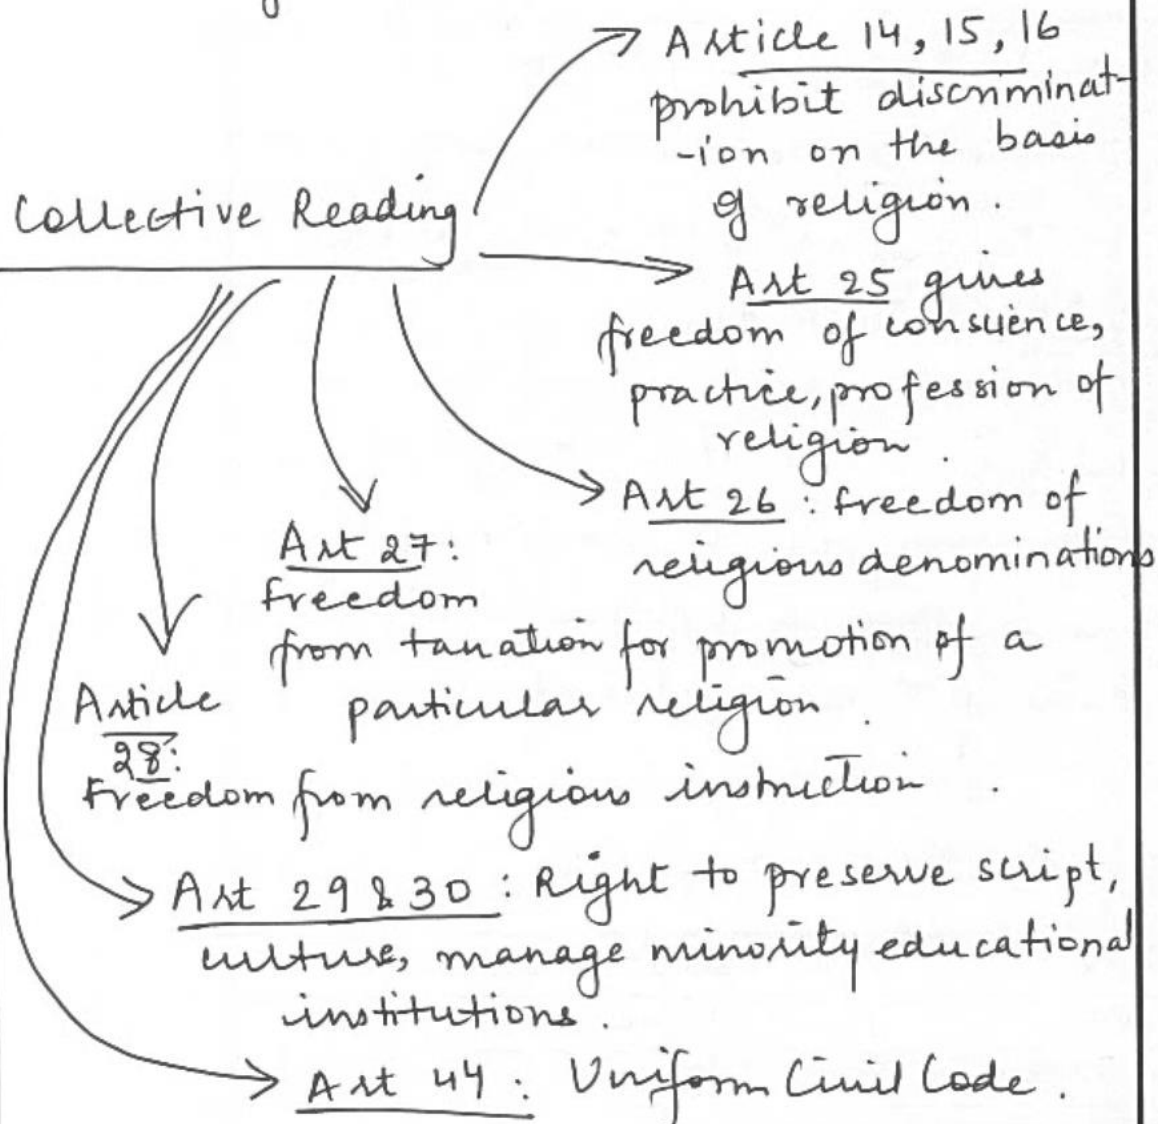 Article 14, 15, 16
prohibit discriminat-
-ion on the basis
of religion.
Collective Reading
Art 25 gives
freedom of conscience,
practice, profession of
religion.
Art 26 : freedom of
religious denominations
Art 27:
freedom
from taxation for promotion of a
particular religion.
Article
28:
Freedom from religious instruction.
Art 29 & 30 : Right to preserve script,
culture, manage minority educational
institutions.
Art 44 : Uniform Civil Code.